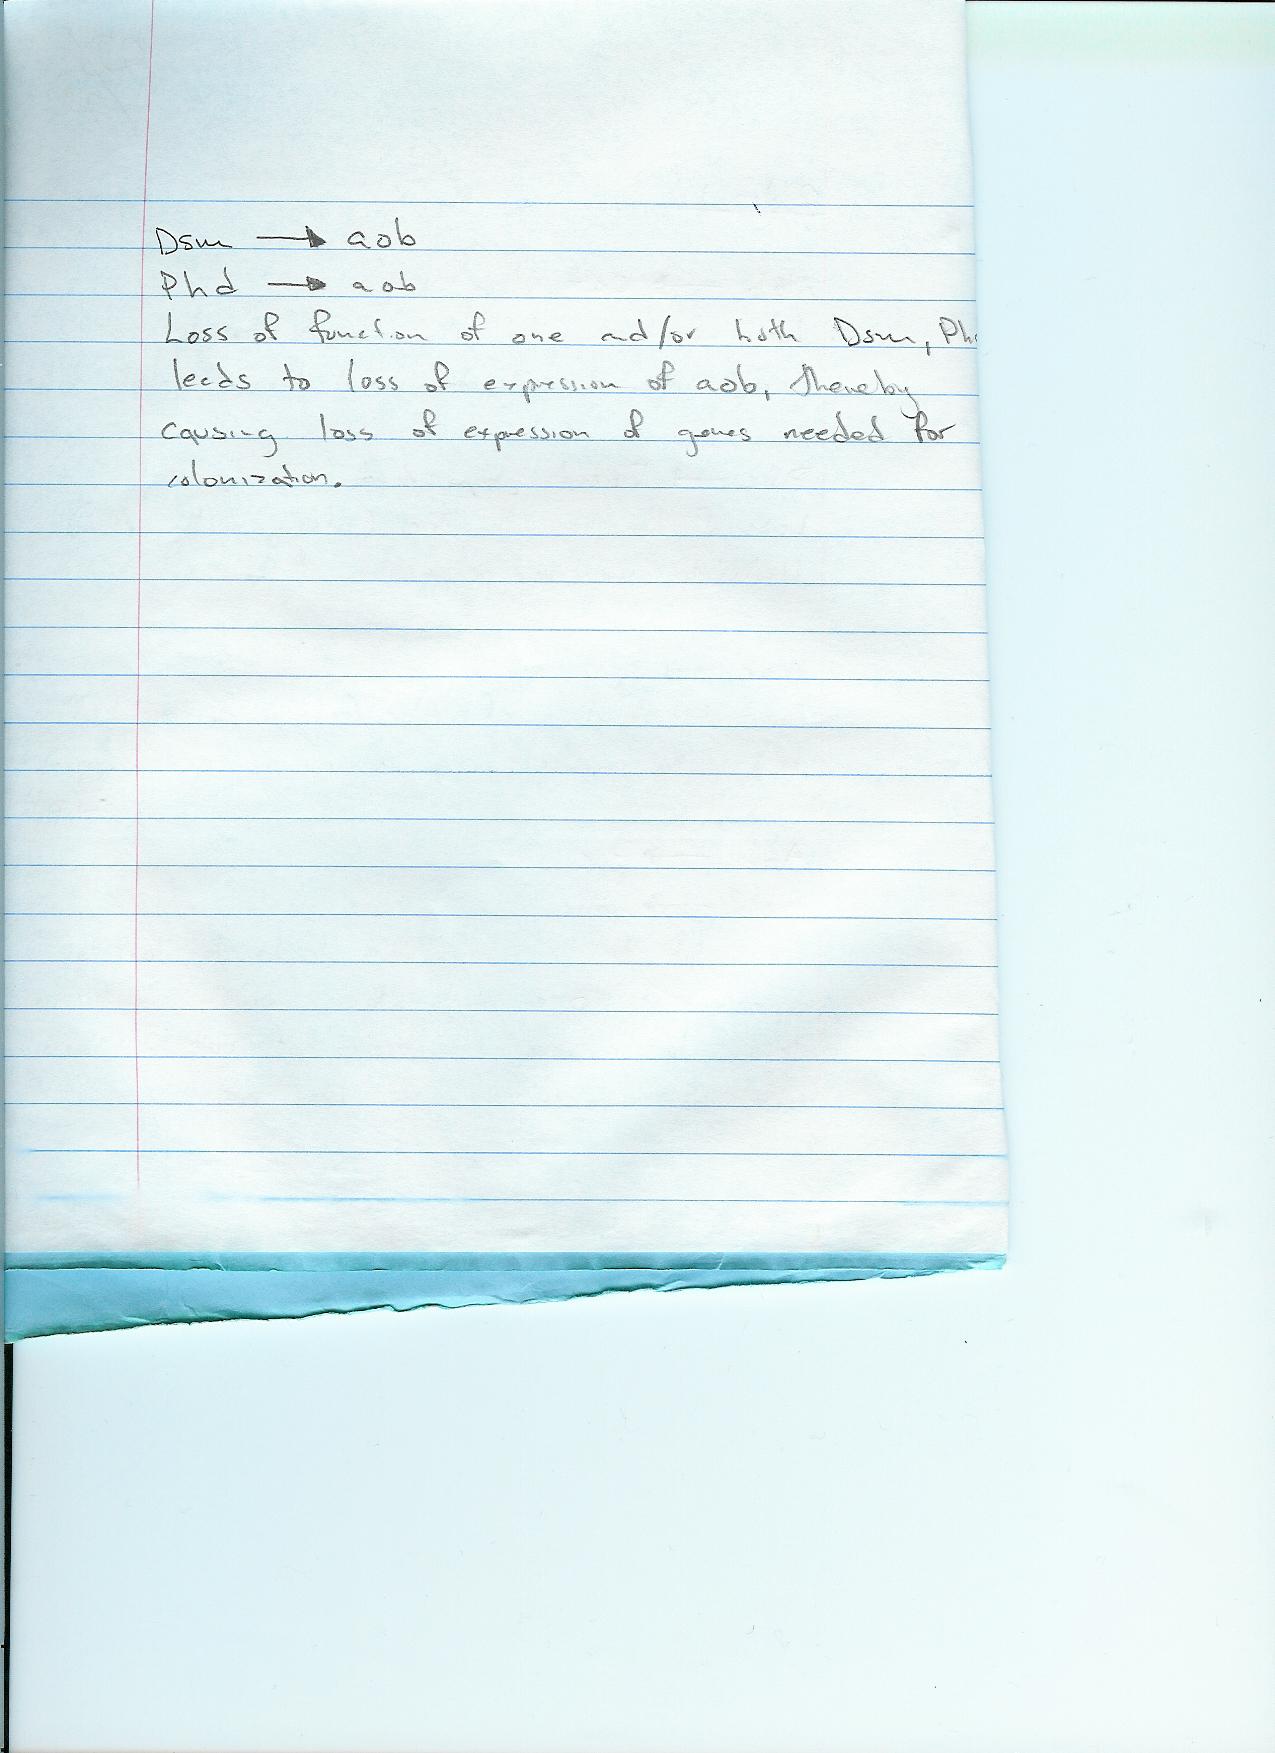 Dsm → aob
Phd → aob
Loss of function of one and/or both Dsm, Ph
leads to loss of expression of aob, thereby
causing loss of expression of genes needed for
colonization.